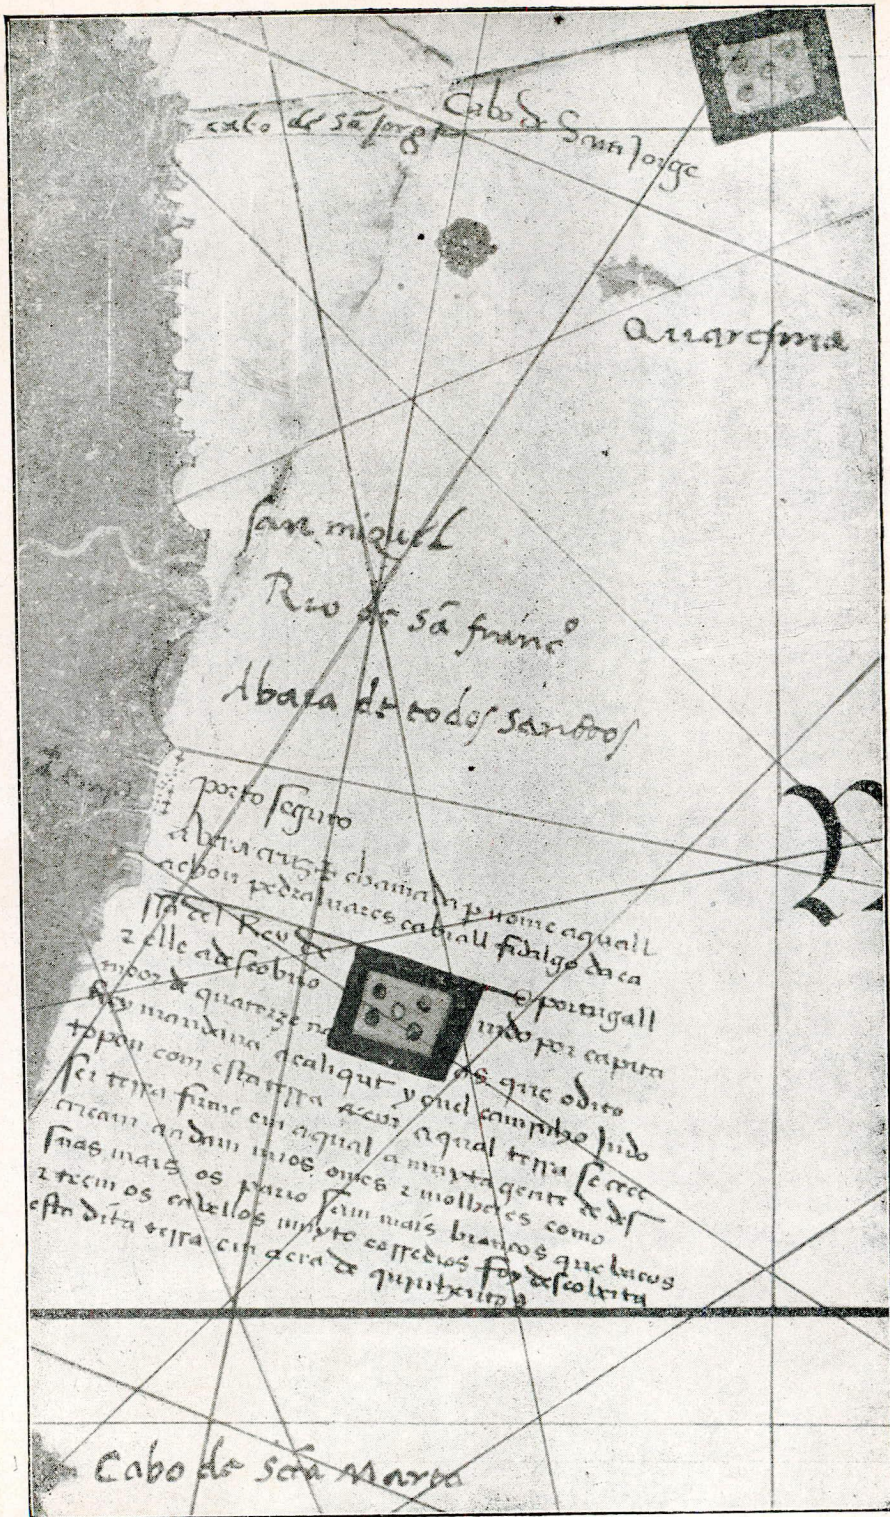 cabo de sã Jorge
Cabo de Sam Jorge
Quaresma
san miguel
Rio de sã franc°
Abaia de todos sanctos
porto seguro
a vera cruz + chamada p nome aquall
achou pedralvares cabrall fidalgo da ca
ssa del Rey de portugall
z elle a descobrio indo por capita
moor de quatorze naos que o dito
Rey mandava a caliqut y enel caminho indo
topou com esta terra aqual terra se cree
ser terra firme em aqual a muyta gente de des
cricam andam nuos omes z molheres como
suas mais os pario sam mais brancos que bacos
z teem os cabellos muyto corredios foy descoberta
esta dita terra em aera de quinhentos
Cabo de sctã Marta